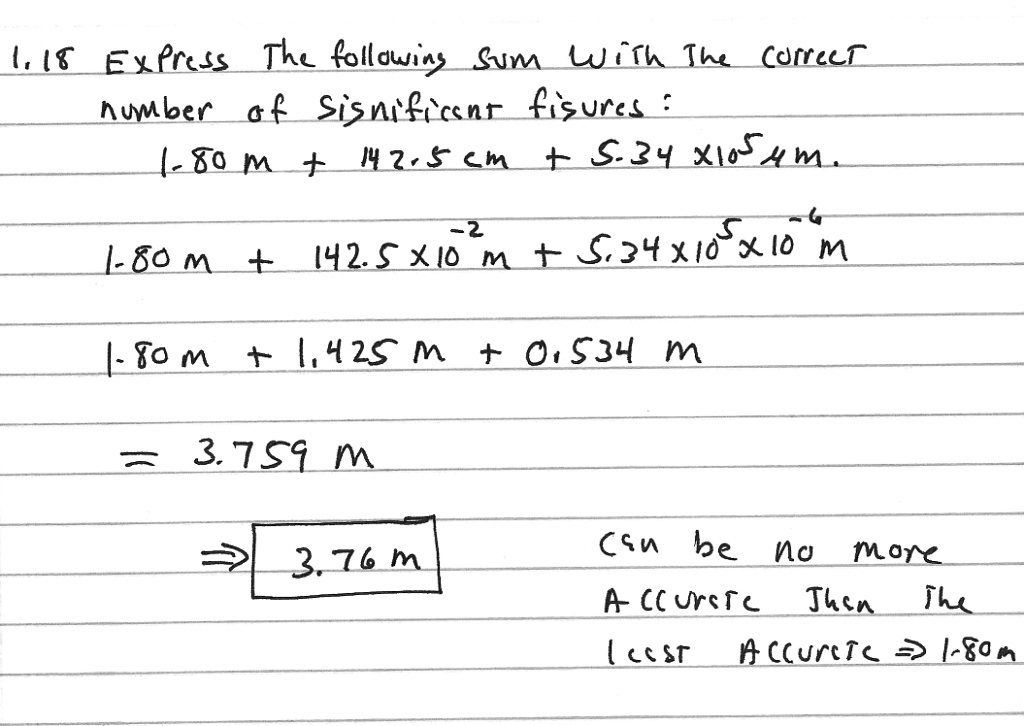 1.18 Express The following sum with The correct
number of significant figures:
1.80 m + 142.5 cm + 5.34 x10⁵ μm.
1.80 m + 142.5 x10⁻² m + 5.34 x10⁵ x10⁻⁶ m
1.80 m + 1.425 m + 0.534 m
= 3.759 m
⇒ 3.76 m
can be no more
Accurate Then The
least Accurate ⇒ 1.80m